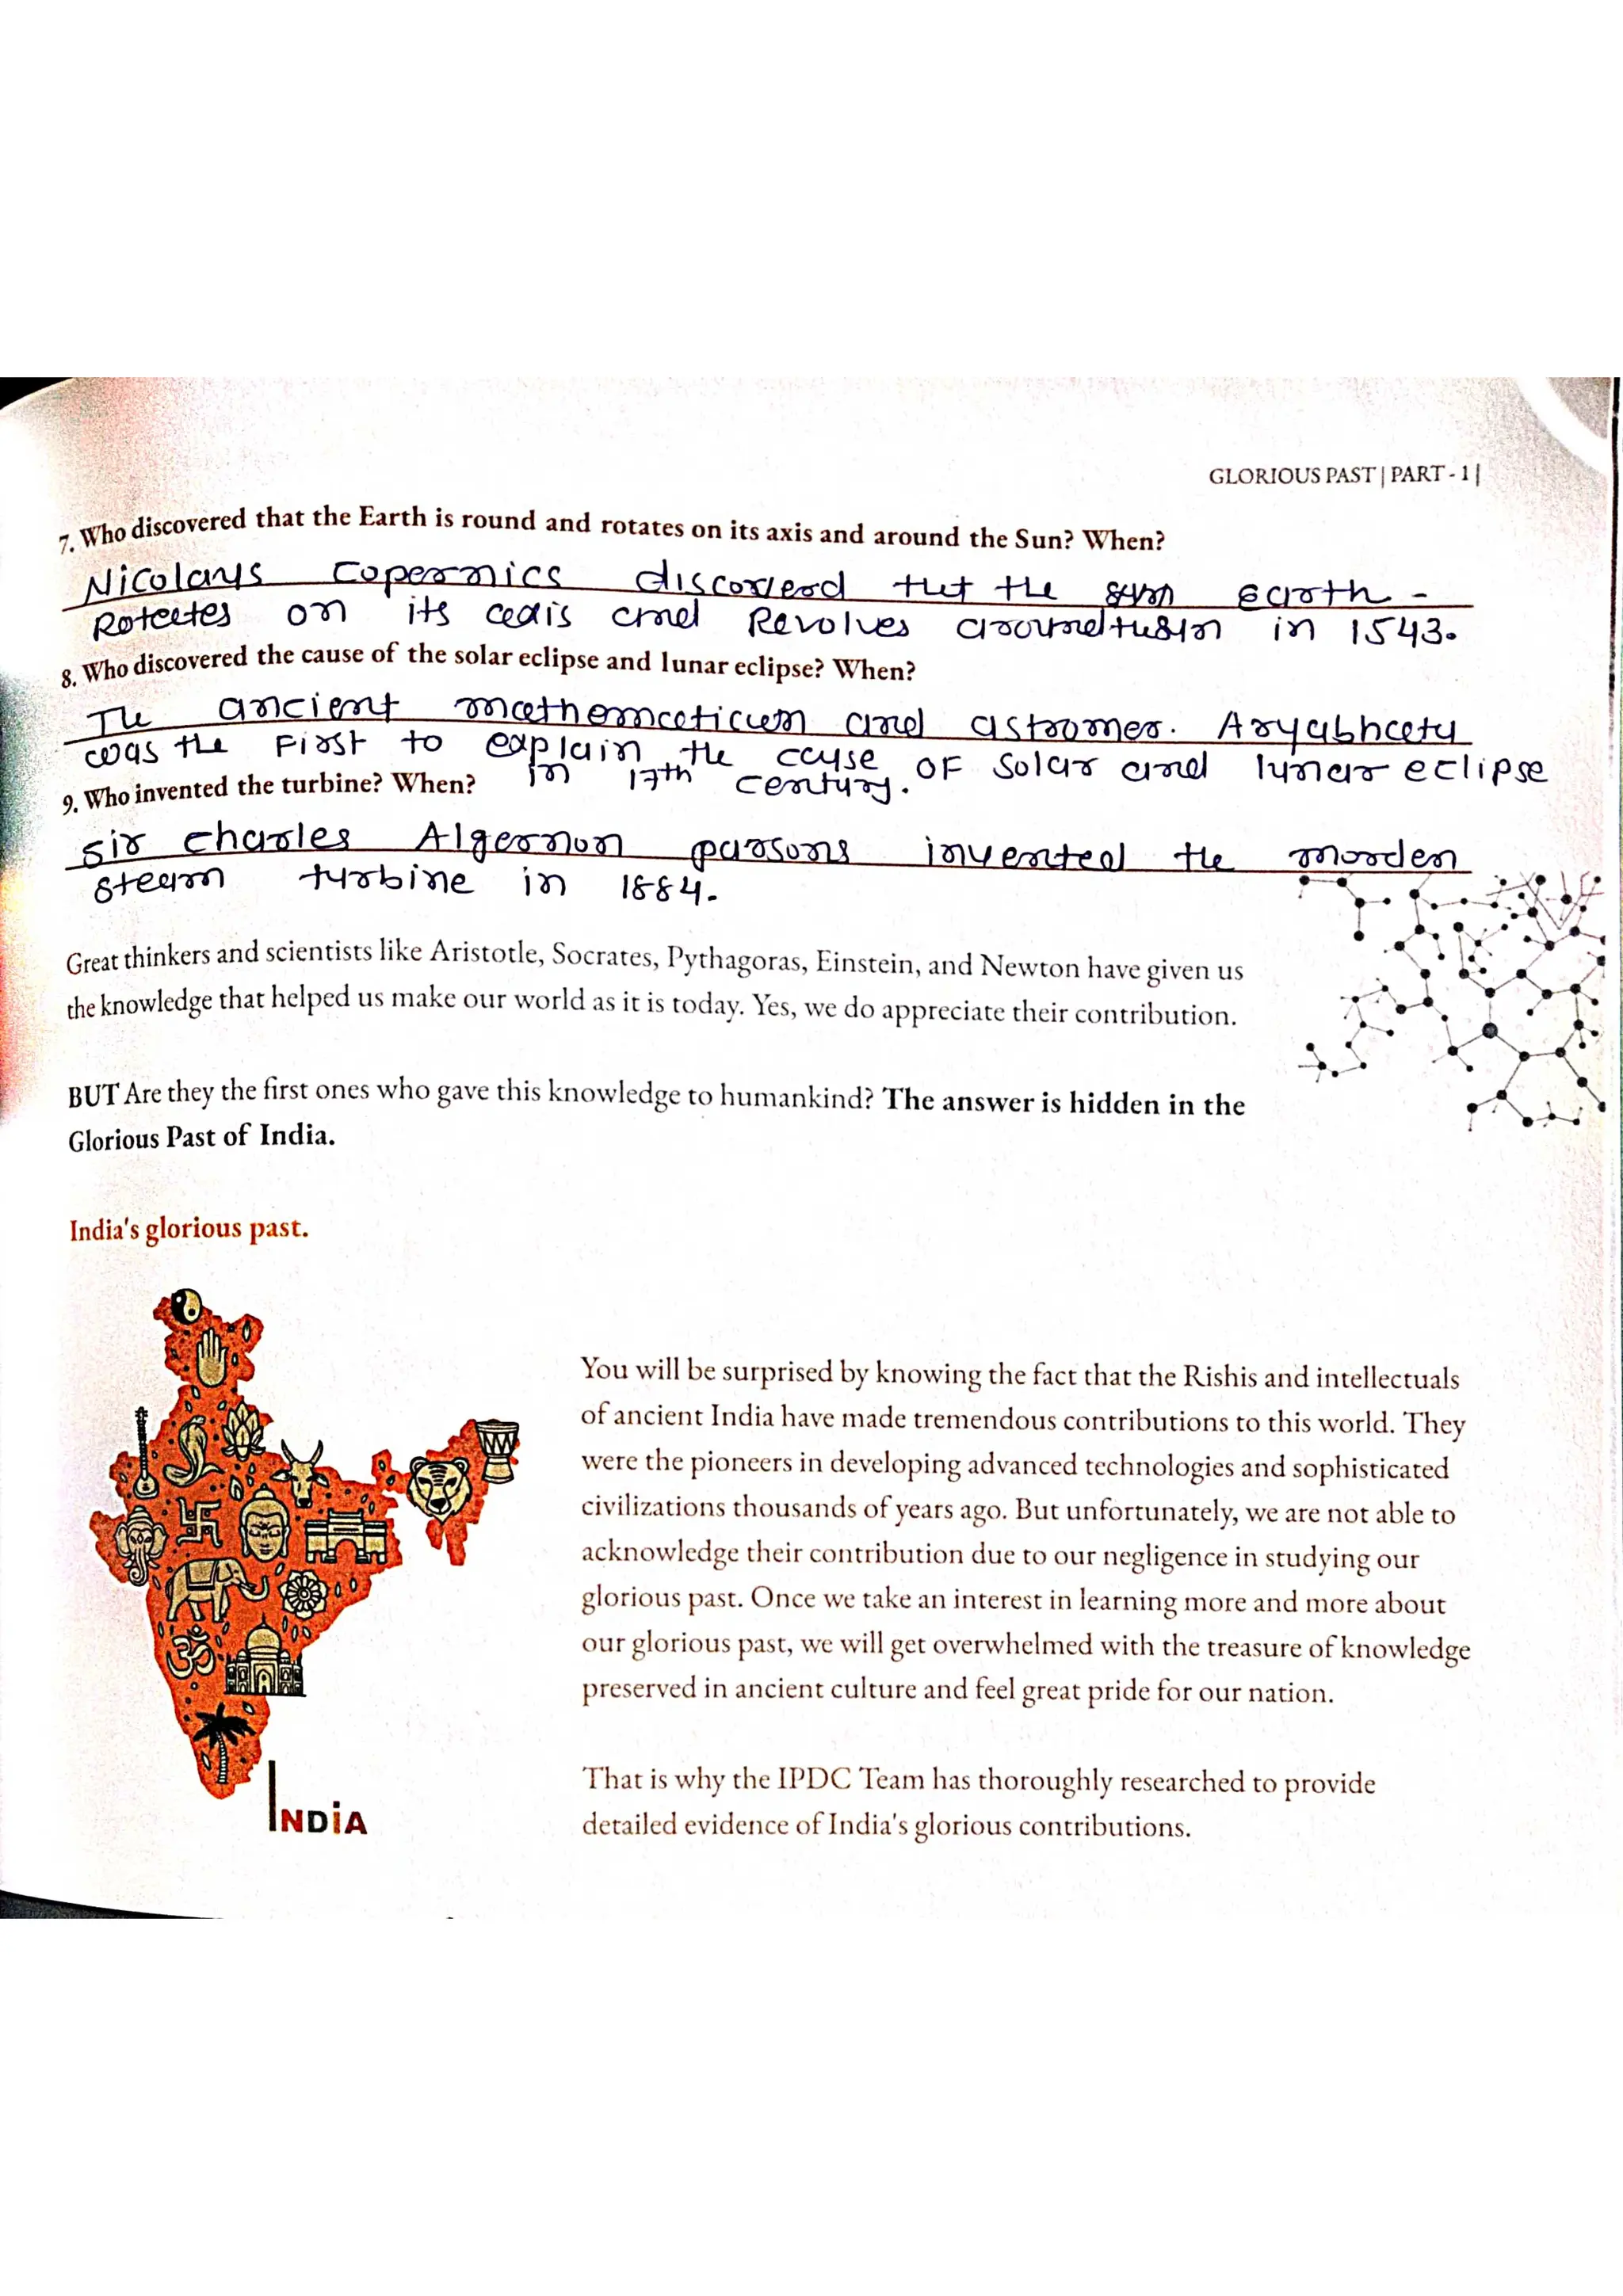 GLORIOUS PAST | PART - 1 |
7. Who discovered that the Earth is round and rotates on its axis and around the Sun? When?
Nicolaus Copernics discoverd tht the sun Earth -
Rotates on its axis and Revolves around the sun in 1543.
8. Who discovered the cause of the solar eclipse and lunar eclipse? When?
The ancient mathematician and astromer. Aryabhata
was the First to explain the cause OF Solar and lunar eclipse
in 17th century.
9. Who invented the turbine? When?
Sir Charles Algernon parsons invented the morden
steam turbine in 1884.
Great thinkers and scientists like Aristotle, Socrates, Pythagoras, Einstein, and Newton have given us
the knowledge that helped us make our world as it is today. Yes, we do appreciate their contribution.
BUT Are they the first ones who gave this knowledge to humankind? The answer is hidden in the
Glorious Past of India.
India's glorious past.
You will be surprised by knowing the fact that the Rishis and intellectuals
of ancient India have made tremendous contributions to this world. They
were the pioneers in developing advanced technologies and sophisticated
civilizations thousands of years ago. But unfortunately, we are not able to
acknowledge their contribution due to our negligence in studying our
glorious past. Once we take an interest in learning more and more about
our glorious past, we will get overwhelmed with the treasure of knowledge
preserved in ancient culture and feel great pride for our nation.
ॐ
INDiA
That is why the IPDC Team has thoroughly researched to provide
detailed evidence of India's glorious contributions.